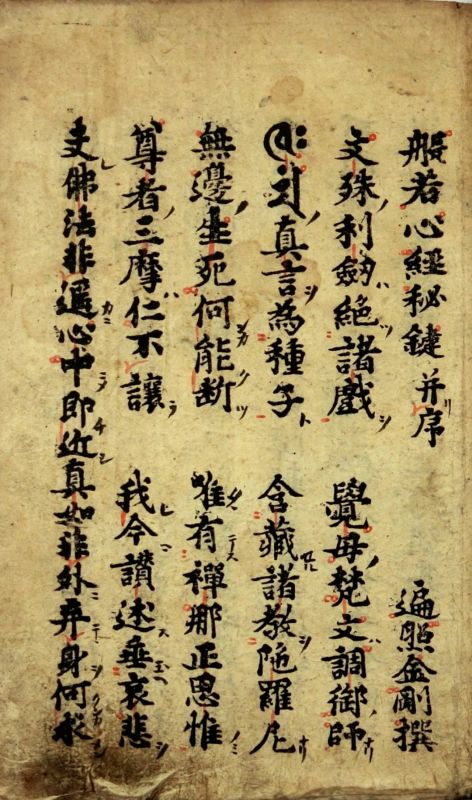 般若心經秘鍵 并序 遍照金剛撰
文殊利劒絶諸戲 覺母梵文調御師
真言為種子 含藏諸教陁羅尼
無邊生死何能断 唯有禪那正思惟
尊者三摩仁不讓 我今讃述垂哀悲
夫佛法非遥心中即近真如非外弃身何求